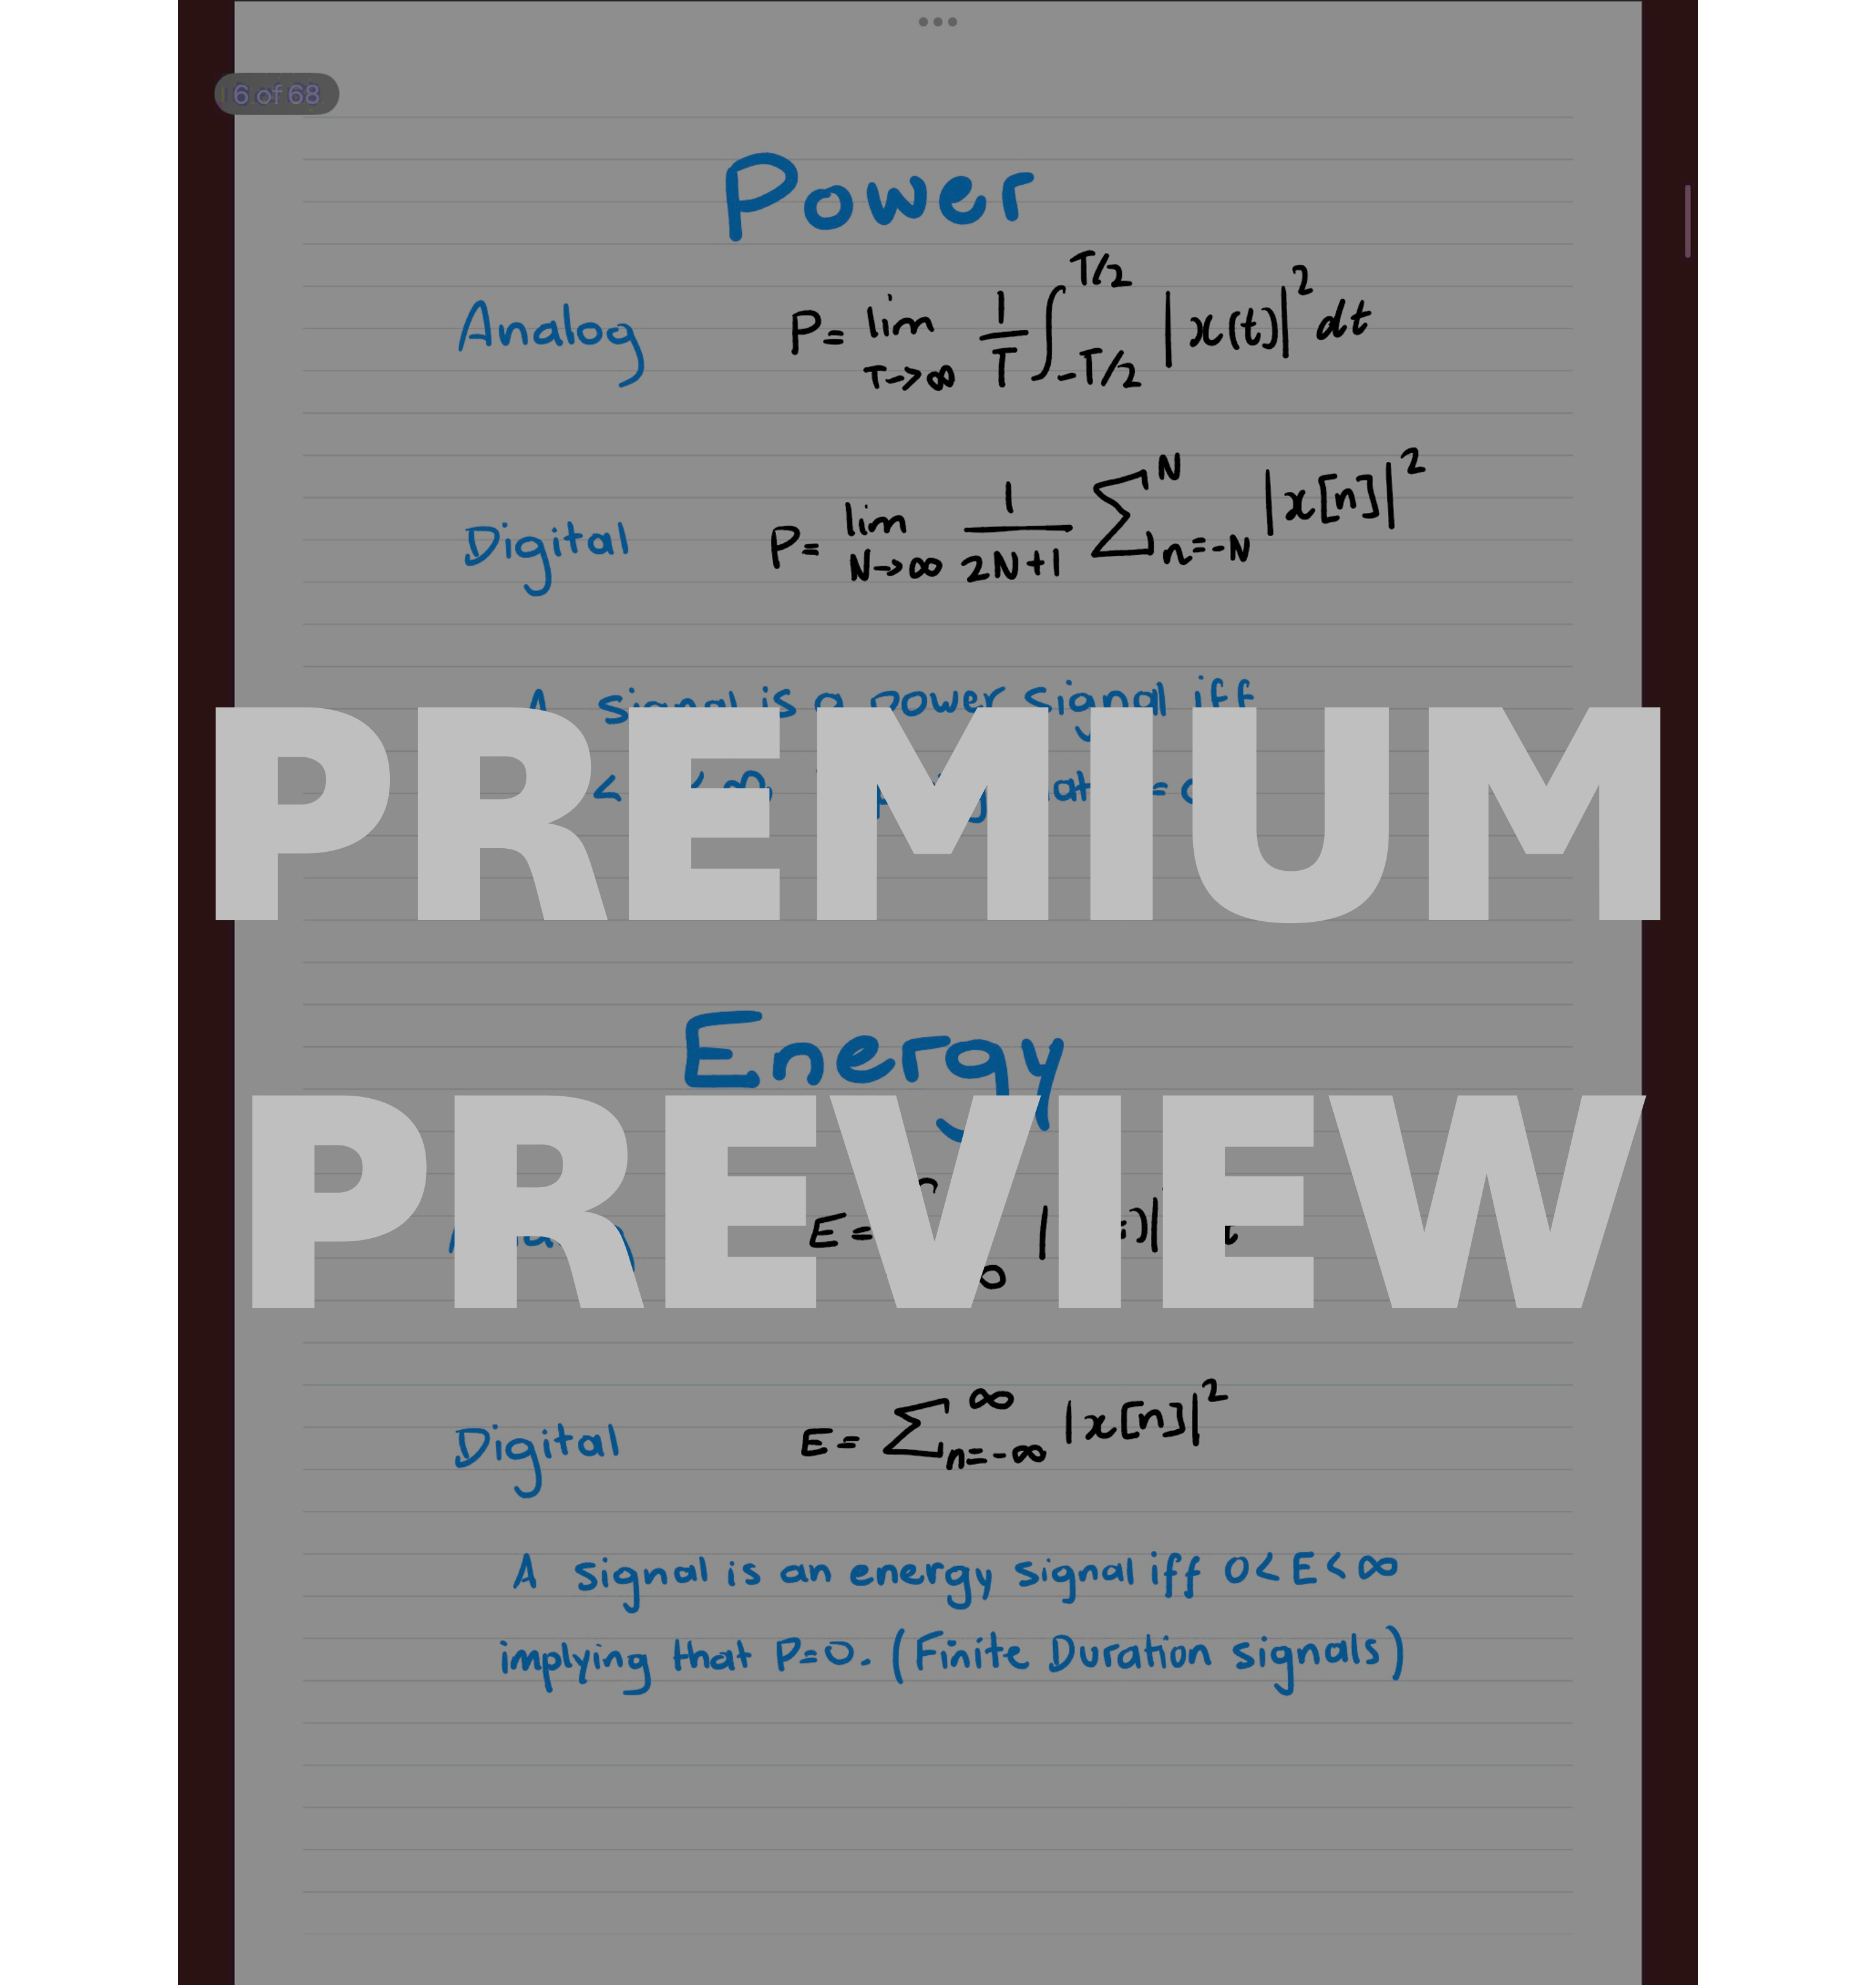 6 of 68
Power
Analog P = lim T→∞ 1/T ∫_{-T/2}^{T/2} |x(t)|² dt
Digital P = lim N→∞ 1/(2N+1) ∑_{n=-N}^{N} |x[n]|²
A signal is a power signal iff
PREMIUM
Energy
E =
PREVIEW
Digital E = ∑_{n=-∞}^{∞} |x[n]|²
A signal is an energy signal iff 0<E<∞
implying that P=0. (Finite Duration signals)